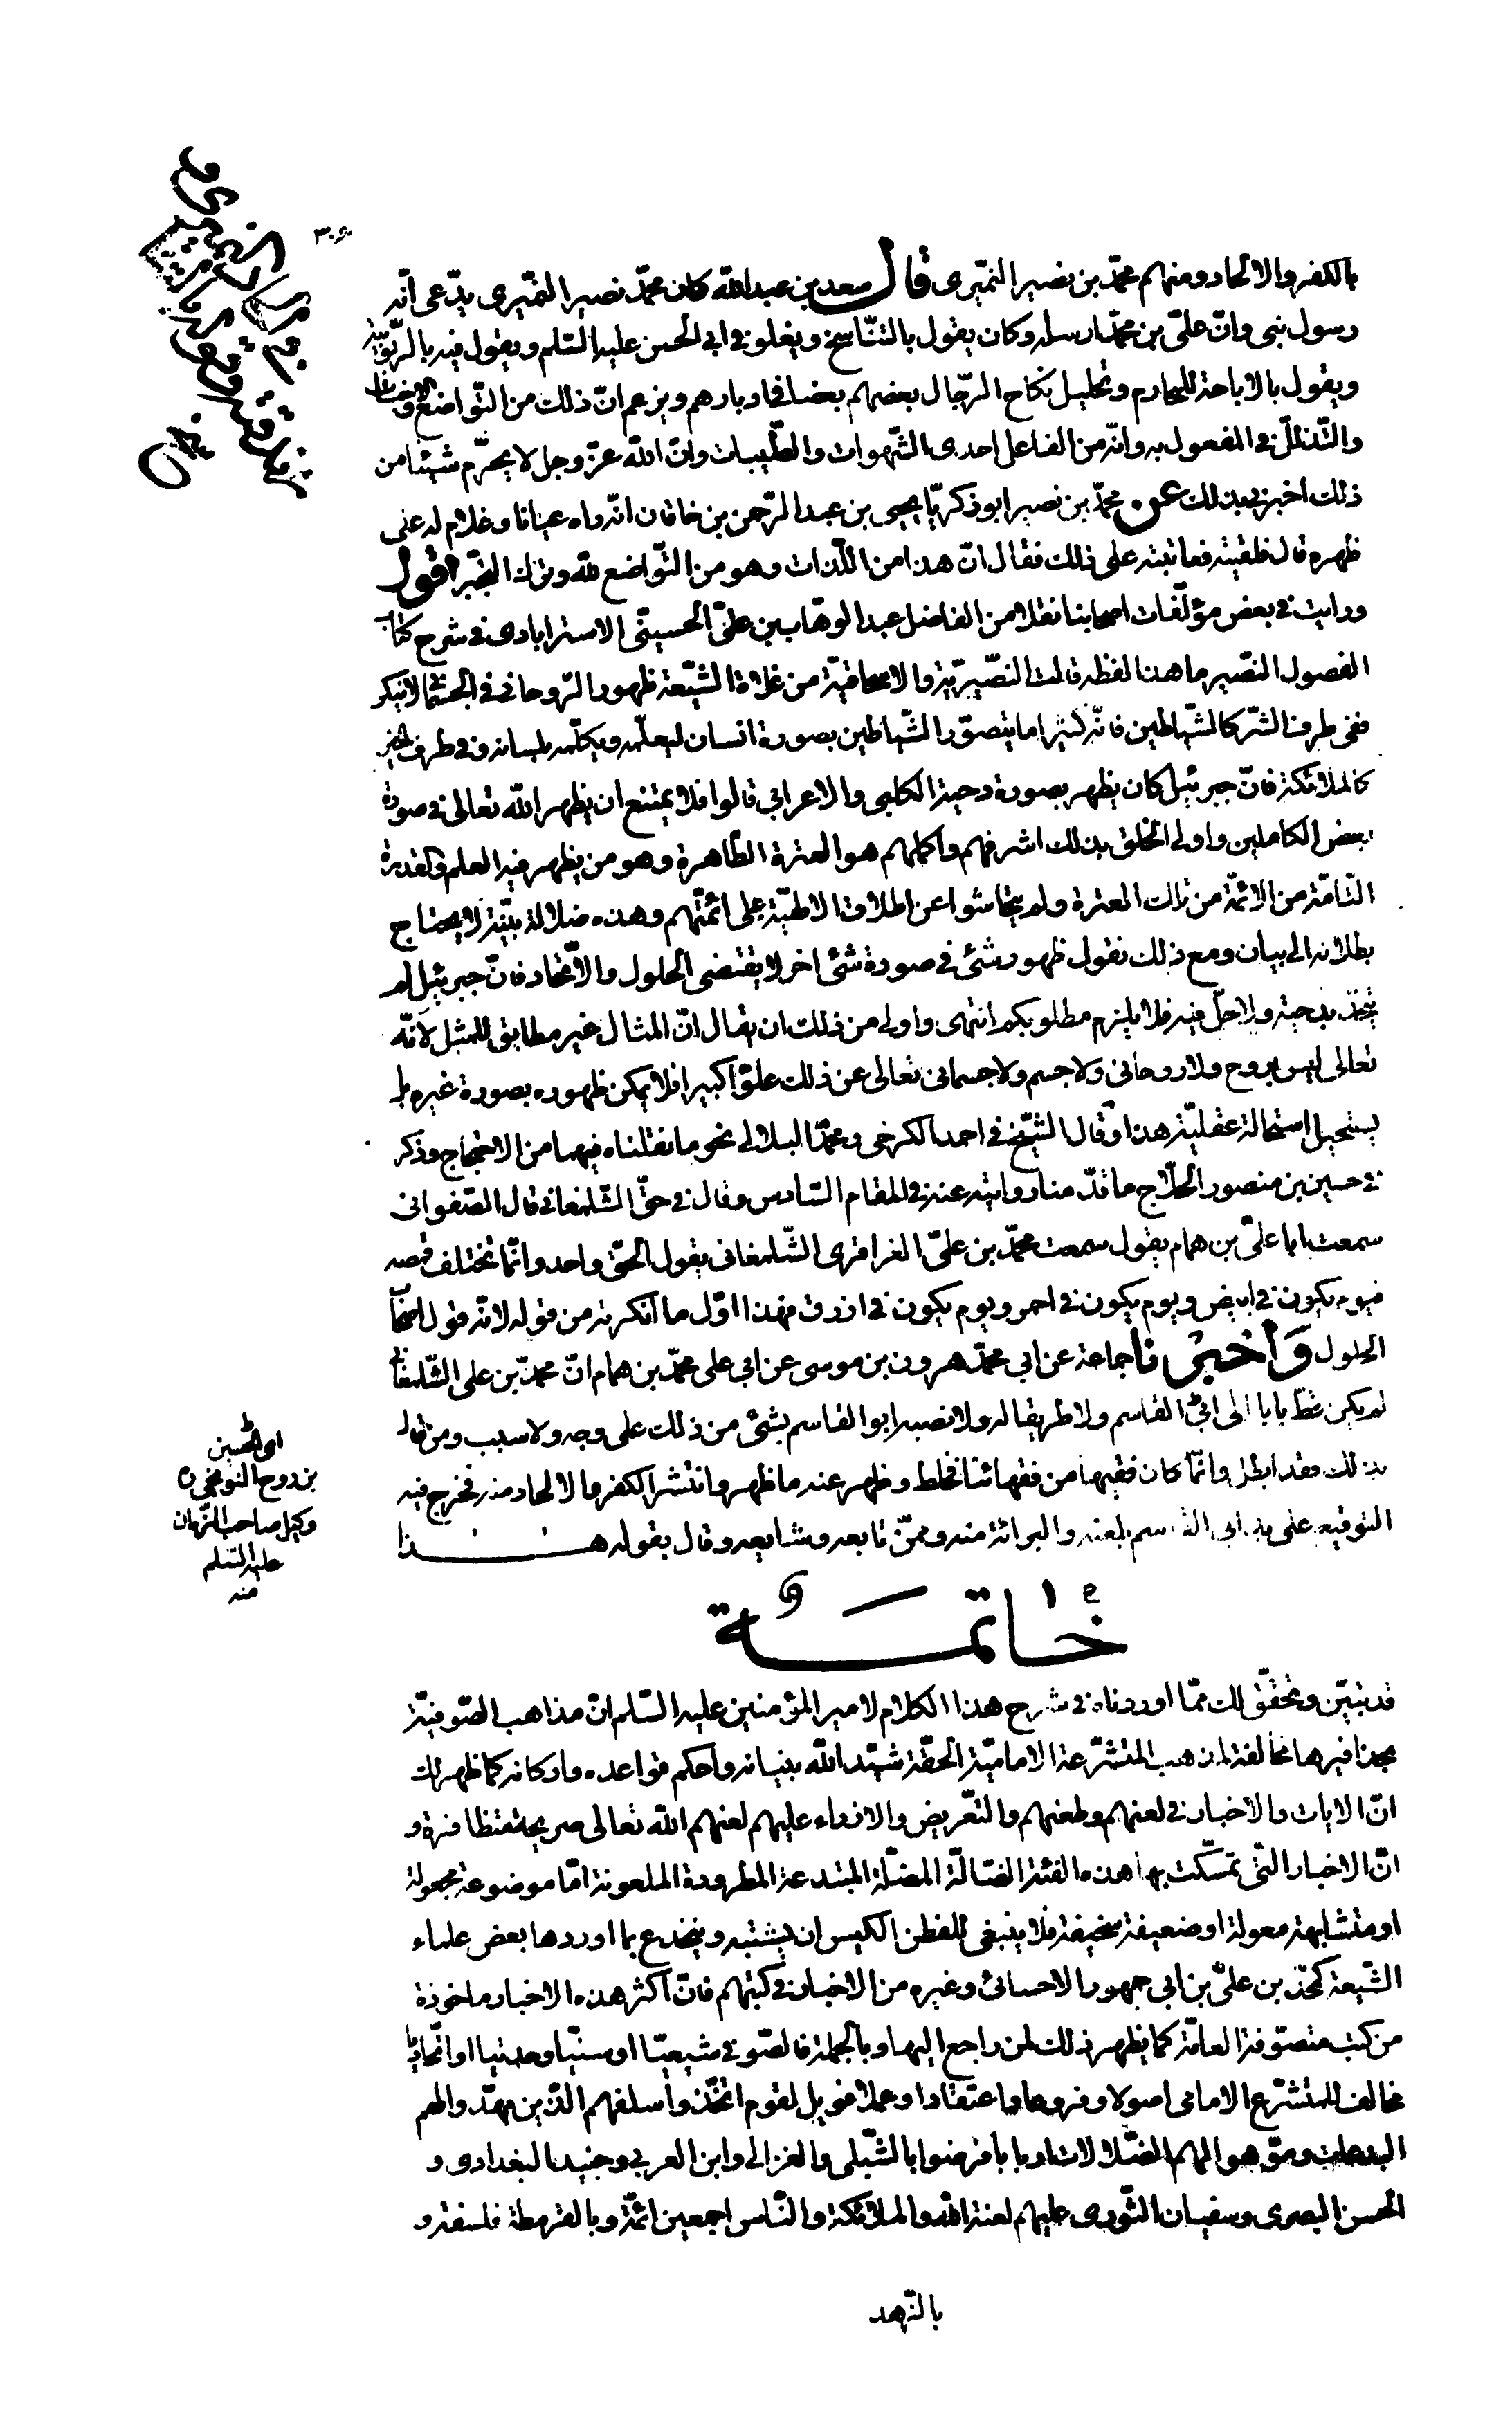 ٣٠۶
بالكفر والالحاد ومنهم محمّد بن نصير النميرى قال سعد بن عبد اللّه كان محمّد نصير النميرى يدّعى انّه
رسول نبى وانّ علىّ بن محمّد ارسله وكان يقول بالتّناسخ ويغلو فى ابى الحسن عليه السّلم ويقول فيه بالرّبوبيّة
ويقول بالاباحة للمحارم وتحليل نكاح الرّجال بعضهم بعضا فى ادبارهم ويزعم انّ ذلك من التّواضع والاخبات
والتّذلّل فى المفعول به وانّه من الفاعل احدى الشّهوات والطّيبات وانّ اللّه عزّ وجل لا يحرّم شيئا من
ذلك اخبرنى بذلك عن محمّد بن نصير ابو ذكريّا يحيى بن عبد الرّحمن بن خاقان انّه راه عيانا وغلام له على
ظهره قال فلقيته فعاتبته على ذلك فقال انّ هذا من اللّذات وهو من التّواضع للّه وترك التّجبّر اقول
ورايت فى بعض مؤلّفات اصحابنا نقلا من الفاضل عبد الوهّاب بن علىّ الحسينّى الاسترابادى فى شرح كتاب
الفصول النّصير ما هذا لفظه قالت النّصيريّة والاسحاقيّة من غلاة الشّيعة ظهور الرّوحانى فى الجسمانى لا ينكر
ففى طرف الشّر كالشّياطين فانّه كثيرا ما يتصوّر الشّياطين بصورة انسان ليعلّمه ويكلّمه بلسانه وفى طرف الخير
كالملائكة فانّ جبرئيل كان يظهر بصورة دحية الكلبى والاعرابي قالوا فلا يمتنع ان يظهر اللّه تعالى فى صورة
بعض الكاملين واولى الخلق بذلك اشرفهم واكملهم هو العترة الطّاهرة وهو من يظهر فيه العلم والقدرة
التّامّة من الائمّة من تلك العترة ولم يتحاشوا عن اطلاق الالهيّة على ائمّتهم وهذه ضلالة بيّنة لا يحتاج
بطلانه الى بيان ومع ذلك نقول ظهور شئ فى صورة شئ اخر لا يقتضى الحلول والاتّحاد فانّ جبرئيل لم
يتّحد بدحية ولا حلّ فيه فلا يلزم مطلوبكم انتهى واولى من ذلك ان يقال انّ المثال غير مطابق للممثل لانّه
تعالى ليس بروح ولا روحانى ولا جسم ولا جسمانى تعالى عن ذلك علوّا كبيرا فلا يمكن ظهوره بصورة غيره بل
يستحيل استحالة عقليّة هذا وقال الشّيخ فى احمد الكرخى ومحمّد البلالى نحو ما نقلناه فيهما من الاحتجاج وذكر
فى حسين بن منصور الحلّاج ما قدّمنا روايته عنه فى المقام السّادس وقال فى حقّ الشّلمغانى قال الصّفوانى
سمعت ابا علىّ بن همام يقول سمعت محمّد بن علىّ العزاقرى الشّلمغانى يقول الحقّ واحد وانّما تختلف قمصه
فيوم يكون فى ابيض ويوم يكون فى احمر ويوم يكون فى ازرق فهذا اوّل ما انكرته من قوله لانّه قول اصحاب
الحلول وَاخبرنا جماعة عن ابى محمّد هرون بن موسى عن ابى على محمّد بن همام انّ محمّد بن على الشّلمغانى
لم يكن قطّ بابا الى ابى القاسم ولا طريقا له ولا نصبه ابو القاسم بشئ من ذلك على وجه ولا سبب ومن قال
بذلك فقد ابطل وانّما كان فقيها من فقهائنا فخلط وظهر عنه ما ظهر وانتشر الكفر والالحاد منه فخرج فيه
التوقيع على يد ابى القاسم بلعنه والبرائة منه وممّن تابعه وشايعه وقال بقوله هـــذا
ابى الحسين
بن روح النوبختى ره
وكيل صاحب الزّمان
عليه السّلم
منه
خَاتمَة
قد تبيّن وتحقّق لك ممّا اوردناه فى شرح هذا الكلام لامير المؤمنين عليه السّلم انّ مذاهب الصّوفيّة
بحذافيرها مخالفة لمذهب المتشرّعة الاماميّة الحقّة شيّد اللّه بنيانه واحكم قواعده واركانه كما ظهر لك
انّ الايات والاخبار فى لعنهم وطعنهم والتّعريض والازراء عليهم لعنهم اللّه تعالى صريحة متظافرة و
انّ الاخبار التى تمسّكت بها هذه الفئة الضّالّة المضلّة المبتدعة المطرودة الملعونة امّا موضوعة مجعولة
او متشابهة معولة او ضعيفة سخيفة فلا ينبغى للفطن الكيس ان يشتبه وينخدع بما اوردها بعض علماء
الشّيعة كمحمّد بن علىّ بن ابى جمهور الاحسائى وغيره من الاخبار فى كتبهم فانّ اكثر هذه الاخبار ماخوذة
من كتب متصوّفة العامّة كما يظهر ذلك لمن راجع اليها وبالجملة فالصّوفى شيعيّا او سنيّا وحدتيا او اتّحاديا
مخالف للمتشرّع الامامى اصولا وفروعا واعتقادا وعملا فويل لقوم اتّخذوا سلفهم الّذين مهّدوا لهم
البدعات وموّهوا لهم الضّلالات اربابا فرضوا بالشّبلى والغزالى وابن العربي وجنيد البغدادى و
الحسن البصرى وسفيان الثّورى عليهم لعنة اللّه والملائكة والنّاس اجمعين ائمّة وبالقرمطة فلسفة و
بالزّهد